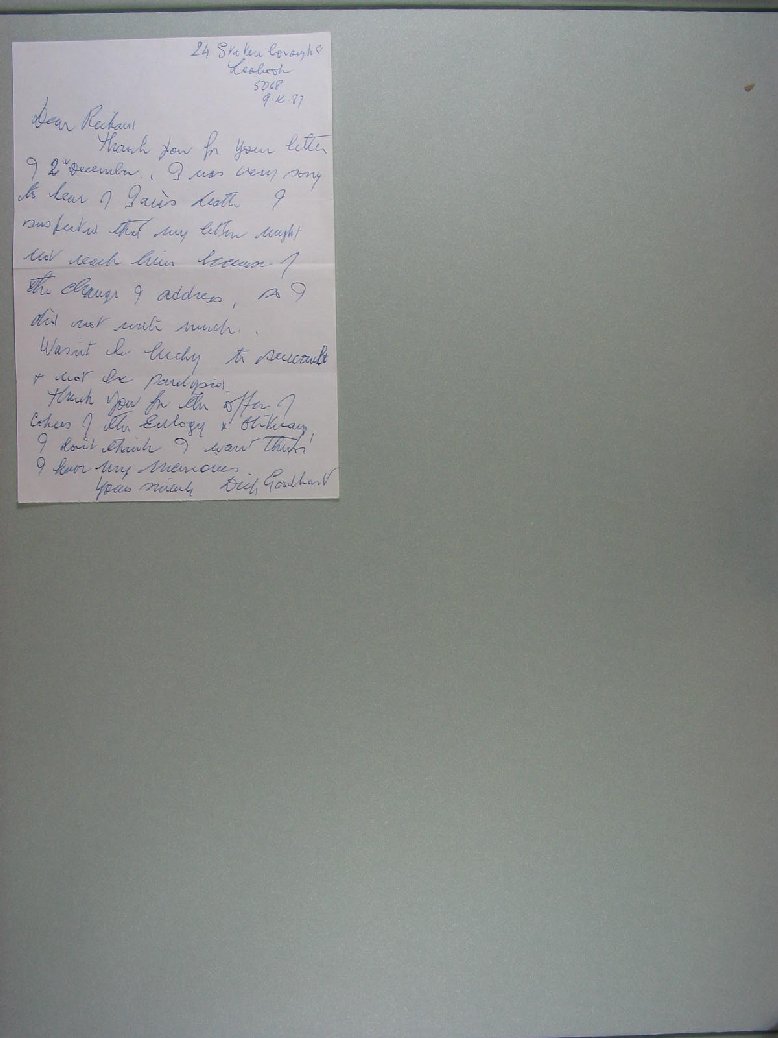 24
5068
Dear Richard
Thank you for your letter
of 2nd December. I was very sorry
to hear of death I
suspected that my letter might
not reach him because of
the change of address, so I
did not write much.
Wasn't he lucky to
& not be paralysed.
Thank you for the offer of
copies of the Eulogy & Obituary,
I don't think I want them!
I have my memories.
Yours sincerely Goodhart